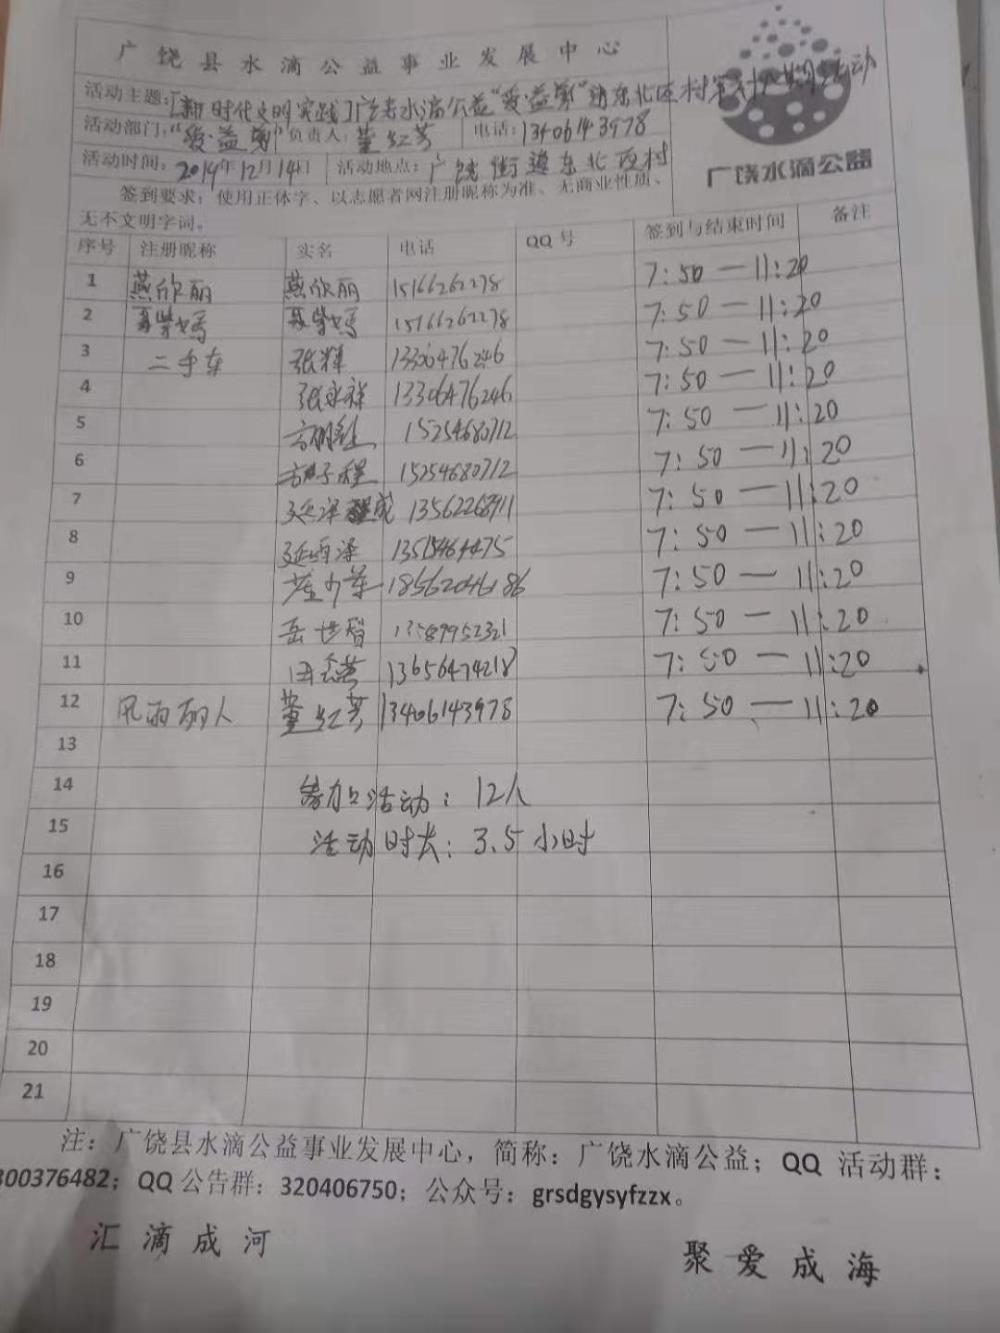 广饶县水滴公益事业发展中心
活动主题:[新时代文明实践]广饶水滴公益"爱·益剪"活动
活动部门:"爱·益剪" 负责人:董红芳 电话:13406143978
活动时间:2019年12月14日 活动地点:广饶街道东北西村
广饶水滴公益
签到要求:使用正体字、以志愿者网注册昵称为准、无商业性质、
无不文明字词。
序号 注册昵称 实名 电话 QQ号 签到与结束时间 备注
1 燕欣丽 燕欣丽 15166262278 7:50—11:20
2 15166262278 7:50—11:20
3 二手车 张辉 13306476246 7:50—11:20
4 张永祥 13306476246 7:50—11:20
5 15254680712 7:50—11:20
6 15254680712 7:50—11:20
7 延泽 7:50—11:20
8 7:50—11:20
9 7:50—11:20
10 岳世智 13589952321 7:50—11:20
11 13656474218 7:50—11:20
12 风雨丽人 董红芳 13406143978 7:50—11:20
13
14 参加活动:12人
15 活动时长:3.5小时
16
17
18
19
20
21
注:广饶县水滴公益事业发展中心,简称:广饶水滴公益;QQ 活动群:
300376482;QQ公告群:320406750;公众号:grsdgysyfzzx。
汇滴成河
聚爱成海